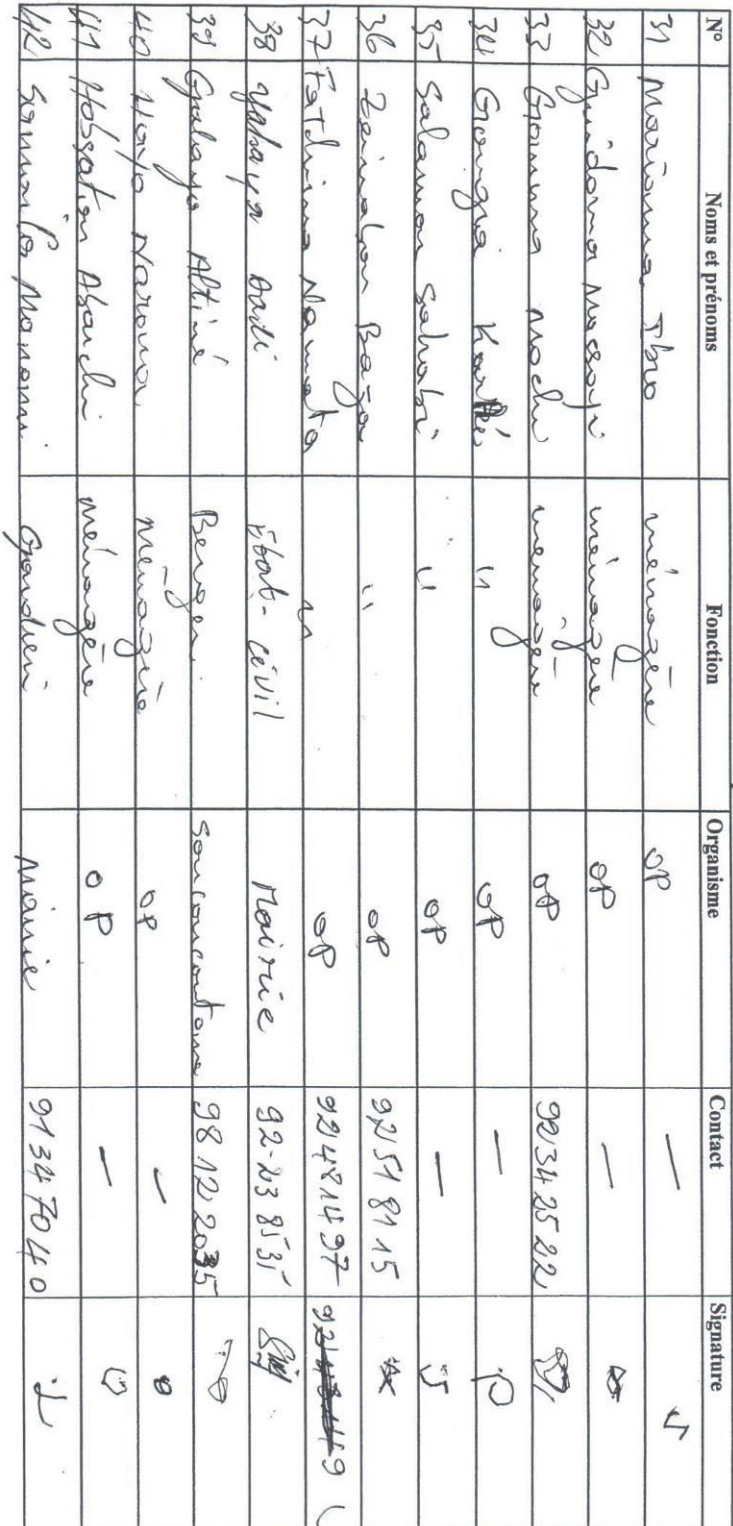 N° Noms et prénoms Fonction Organisme Contact Signature
31 Marianna Ibro ménagère OP —
32 Guidama Massaji ménagère OP —
33 Gomma Mochi ménagère OP 92342522
34 Goungia Karbé " OP —
35 Salamou Sahabi " OP —
36 Zeinabou Baga " OP 92518115
37 Fatchima Namata " OP 92481497
38 Yahaya Andi État-civil Mairie 92-238535
39 Galayo Altiné Berger Soucoucoutane 98122035
40 Hayo Naroua Ménagère OP —
41 Habsatou Abouchi ménagère OP —
42 Manomi Gandieri Mairie 91347040